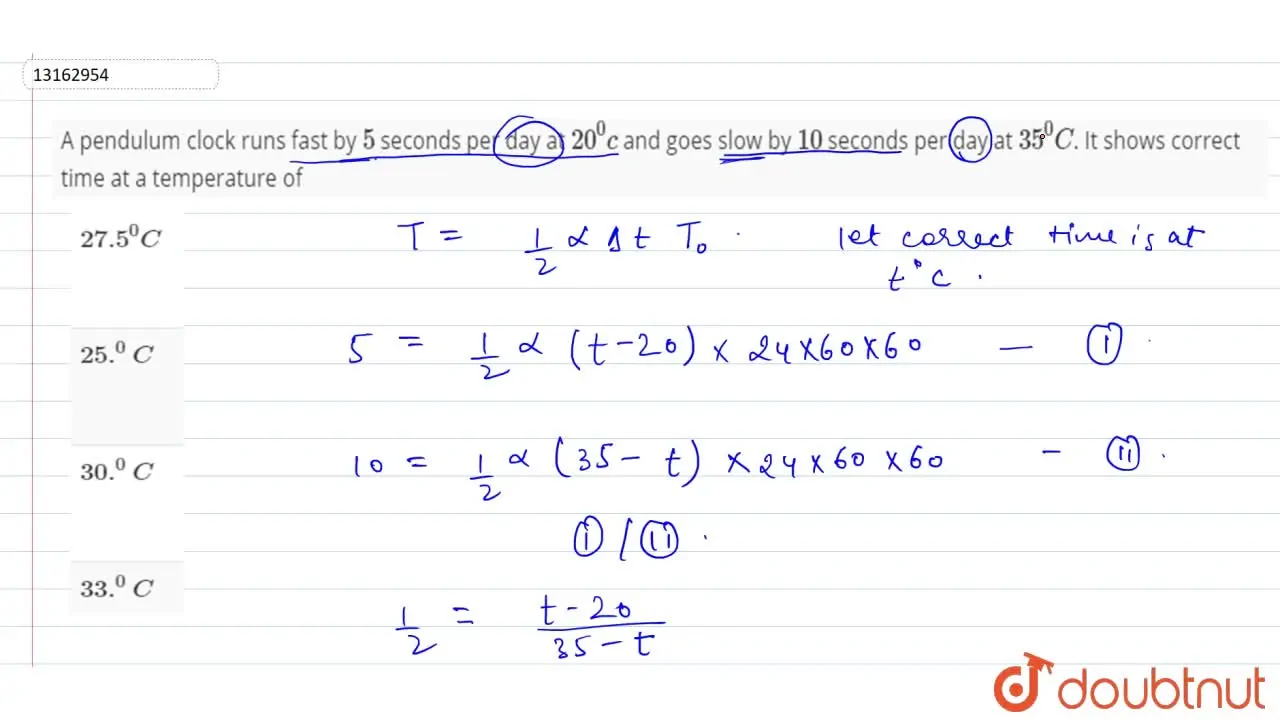 13162954
A pendulum clock runs fast by 5 seconds per day at 20⁰c and goes slow by 10 seconds per day at 35⁰C. It shows correct
time at a temperature of
27.5⁰C
T = 1/2 α Δt T₀ .
let correct time is at
t°C .
25.⁰ C
5 = 1/2 α (t-20) × 24×60×60 — (i) .
30.⁰ C
10 = 1/2 α (35-t) × 24×60×60 - (ii) .
(i) / (ii) .
33.⁰ C
1/2 = t-20/35-t
doubtnut